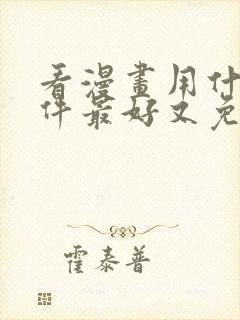 看漫畫用什
件最好又免
霍泰普